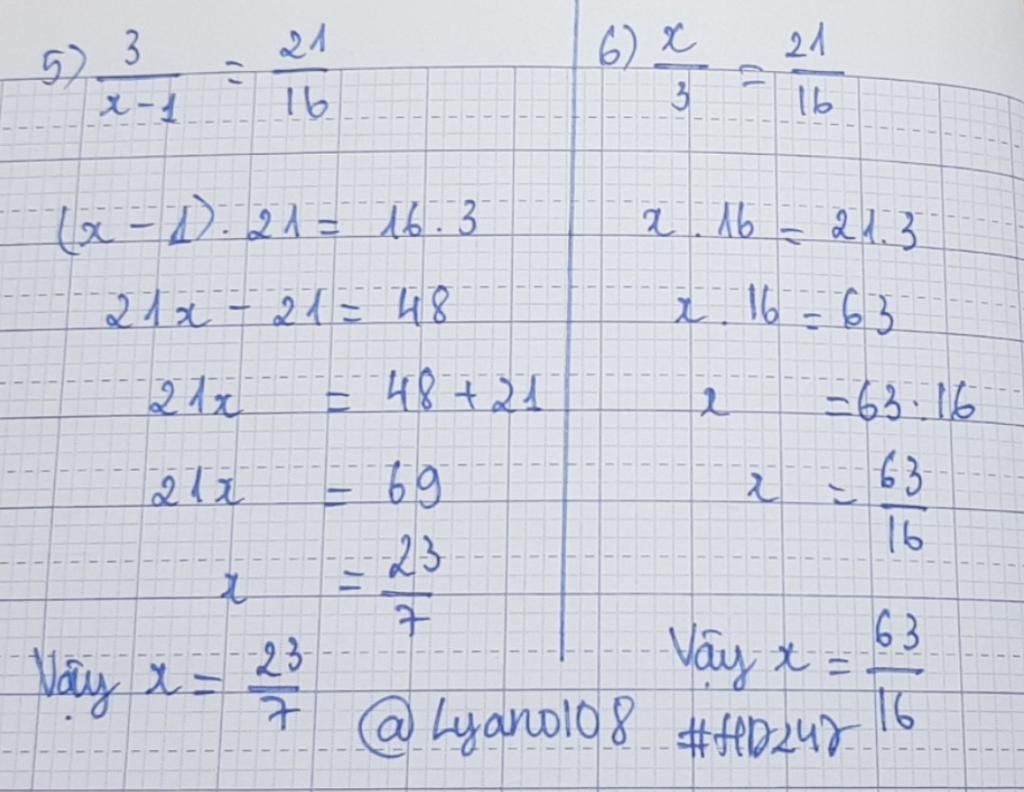 5) 3/(x-1) = 21/16
(x - 1) . 21 = 16 . 3
21x - 21 = 48
21x = 48 + 21
21x = 69
x = 23/7
Vậy x = 23/7
6) x/3 = 21/16
x . 16 = 21.3
x . 16 = 63
x = 63 : 16
x = 63/16
Vậy x = 63/16
@Lyano108